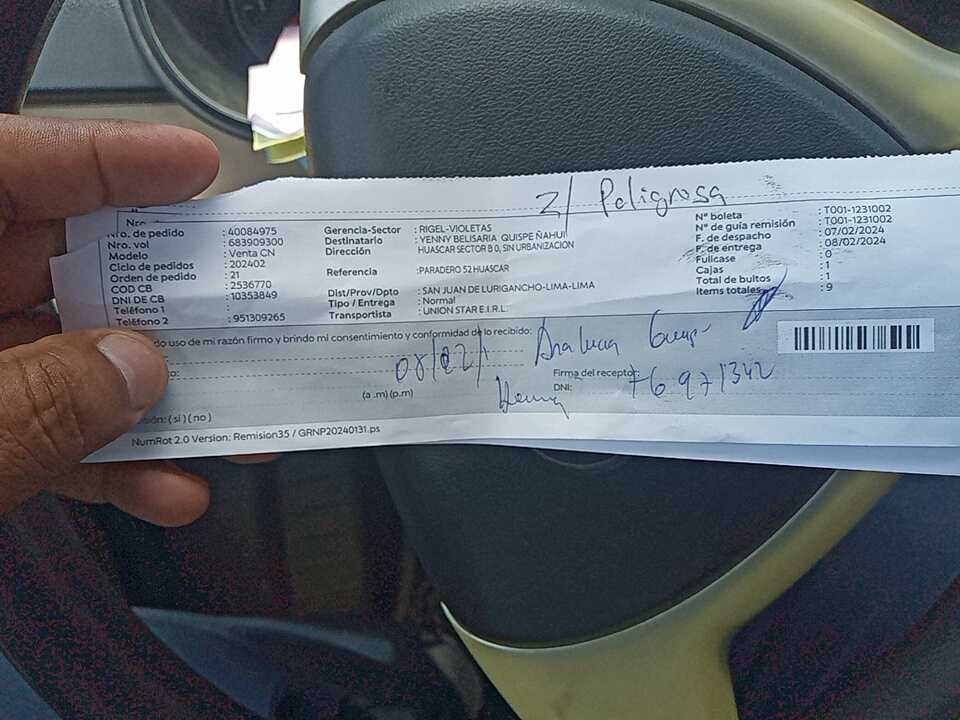 Z/ Peligrosa
Nro. de pedido : 40084975
Nro. vol : 683909300
Modelo : Venta CN
Ciclo de pedidos : 202402
Orden de pedido : 21
COD CB : 2536770
DNI DE CB : 10353849
Teléfono 1 :
Teléfono 2 : 951309265
Gerencia-Sector : RIGEL-VIOLETAS
Destinatario : YENNY BELISARIA QUISPE ÑAHUI
Dirección : HUASCAR SECTOR B 0, SN URBANIZACION
Referencia : PARADERO 52 HUASCAR
Dist/Prov/Dpto : SAN JUAN DE LURIGANCHO-LIMA-LIMA
Tipo / Entrega : Normal
Transportista : UNION STAR E.I.R.L.
N° boleta : T001-1231002
N° de guía remisión : T001-1231002
F. de despacho : 07/02/2024
F. de entrega : 08/02/2024
Fullcase : 0
Cajas : 1
Total de bultos : 1
Items totales : 9
do uso de mi razón firmo y brindo mi consentimiento y conformidad de lo recibido:
08/02/
(a .m) (p.m)
Firma del receptor:
DNI: 76971342
( si ) ( no )
NumRot 2.0 Version: Remision35 / GRNP20240131.ps